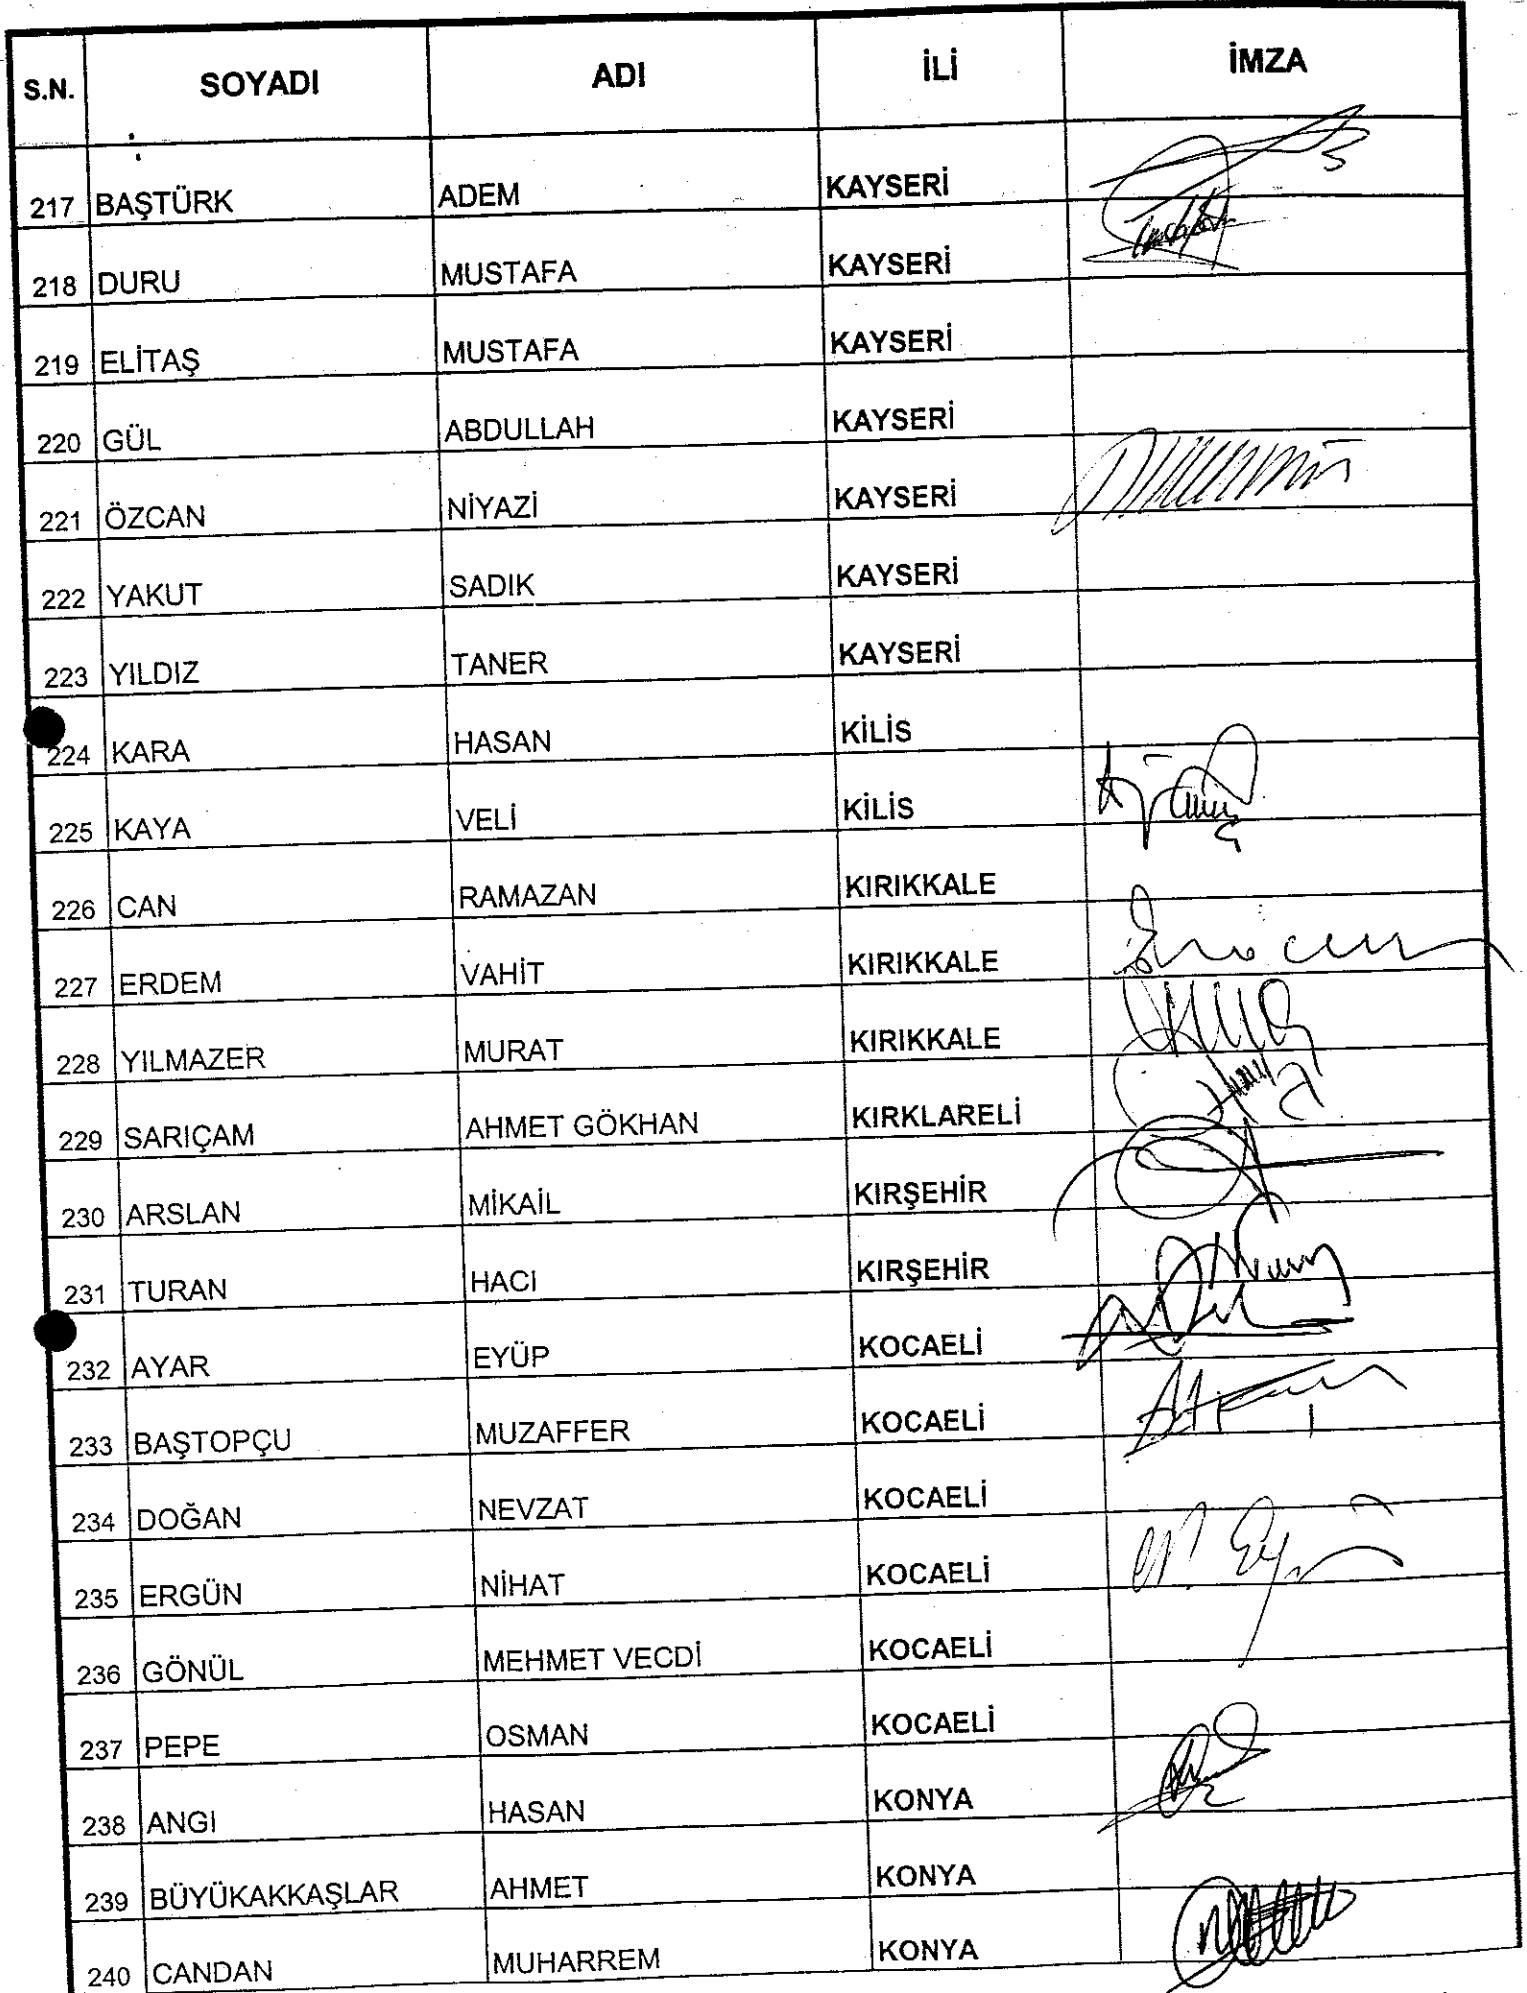 S.N. SOYADI ADI İLİ İMZA
217 BAŞTÜRK ADEM KAYSERİ
218 DURU MUSTAFA KAYSERİ
219 ELİTAŞ MUSTAFA KAYSERİ
220 GÜL ABDULLAH KAYSERİ
221 ÖZCAN NİYAZİ KAYSERİ
222 YAKUT SADIK KAYSERİ
223 YILDIZ TANER KAYSERİ
224 KARA HASAN KİLİS
225 KAYA VELİ KİLİS
226 CAN RAMAZAN KIRIKKALE
227 ERDEM VAHİT KIRIKKALE
228 YILMAZER MURAT KIRIKKALE
229 SARIÇAM AHMET GÖKHAN KIRKLARELİ
230 ARSLAN MİKAİL KIRŞEHİR
231 TURAN HACI KIRŞEHİR
232 AYAR EYÜP KOCAELİ
233 BAŞTOPÇU MUZAFFER KOCAELİ
234 DOĞAN NEVZAT KOCAELİ
235 ERGÜN NİHAT KOCAELİ
236 GÖNÜL MEHMET VECDİ KOCAELİ
237 PEPE OSMAN KOCAELİ
238 ANGI HASAN KONYA
239 BÜYÜKAKKAŞLAR AHMET KONYA
240 CANDAN MUHARREM KONYA